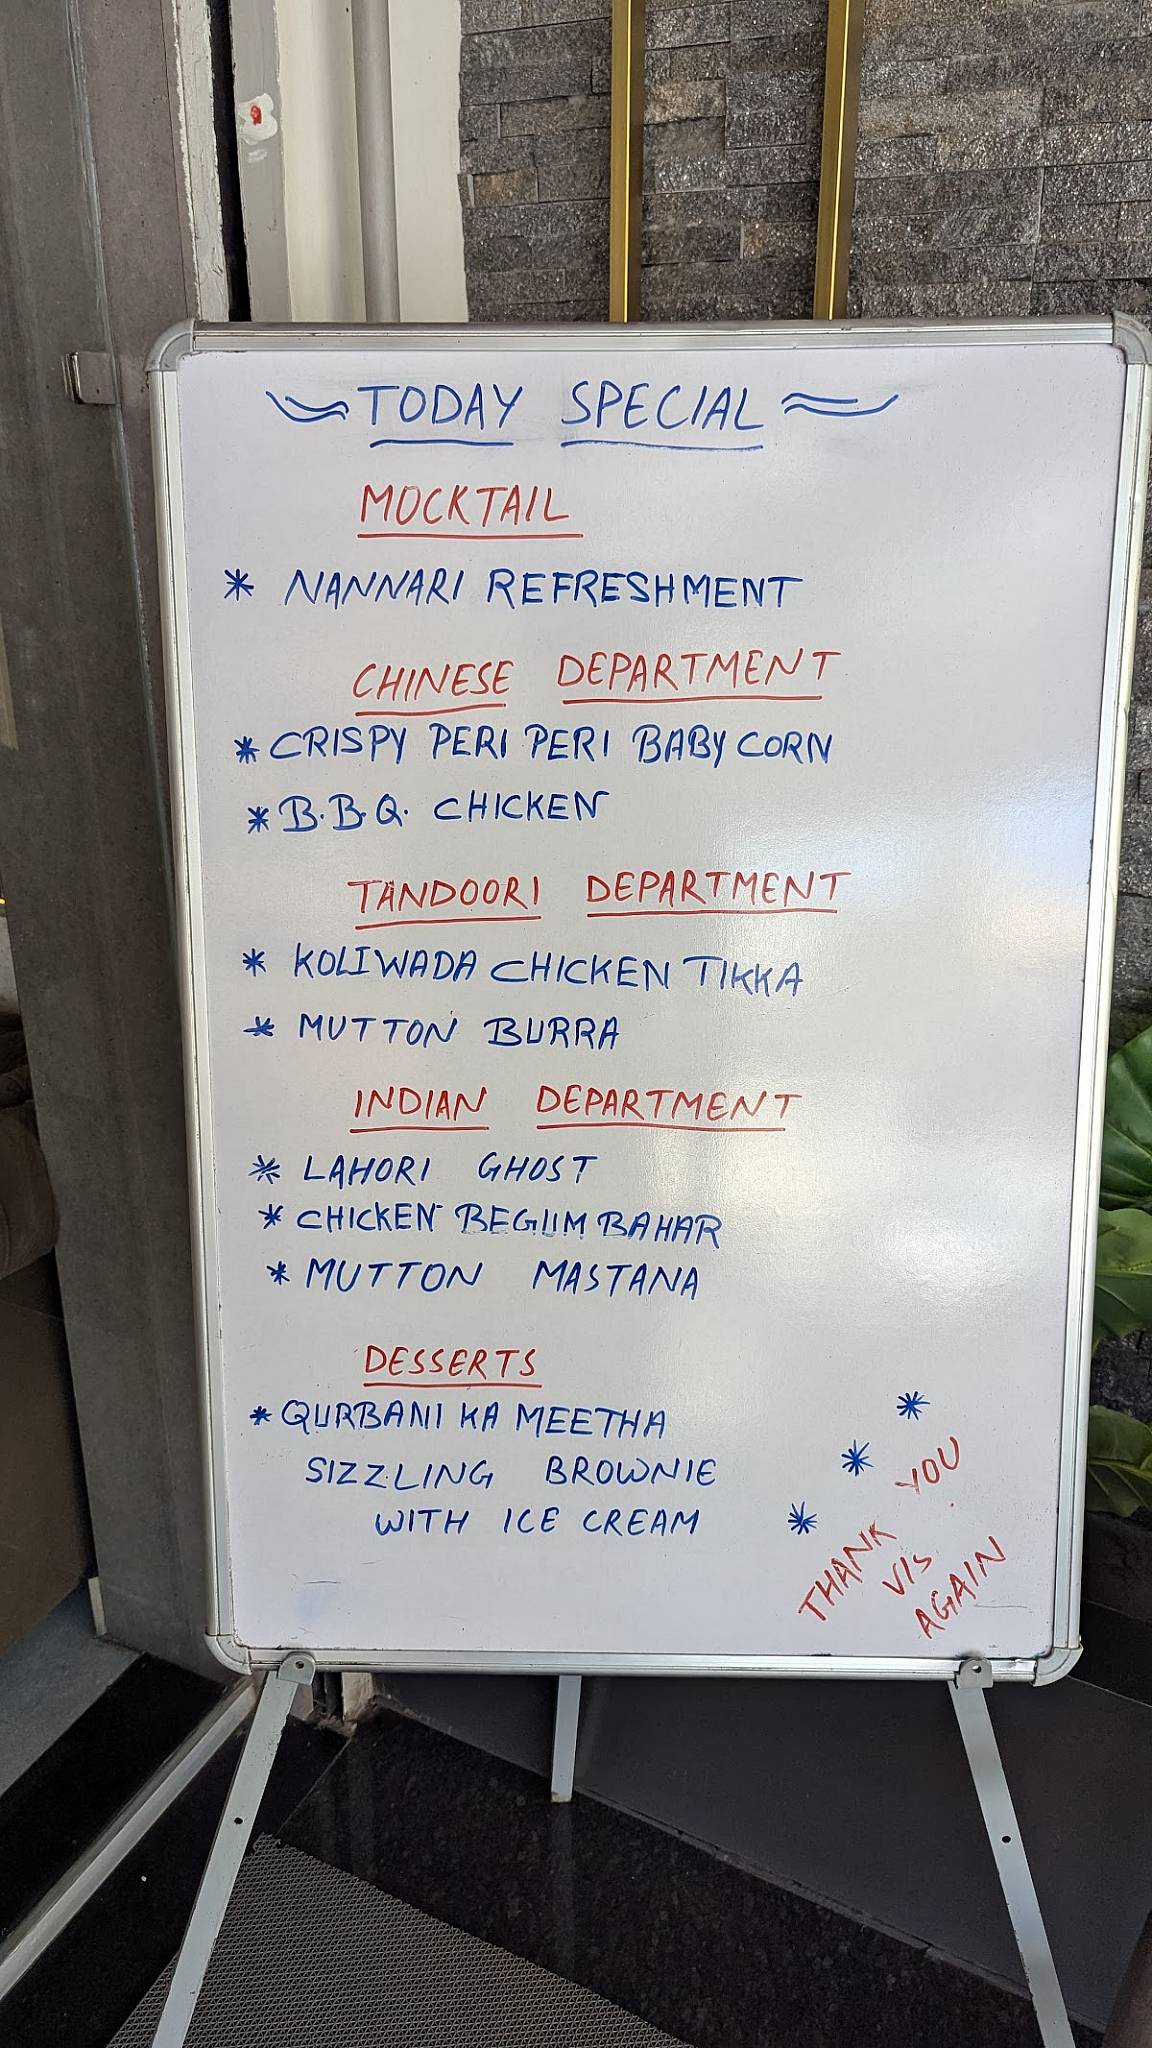 TODAY SPECIAL
MOCKTAIL
* NANNARI REFRESHMENT
CHINESE DEPARTMENT
* CRISPY PERI PERI BABY CORN
* B.B.Q. CHICKEN
TANDOORI DEPARTMENT
* KOLIWADA CHICKEN TIKKA
* MUTTON BURRA
INDIAN DEPARTMENT
* LAHORI GHOST
* CHICKEN BEGUM BAHAR
* MUTTON MASTANA
DESSERTS
* QURBANI KA MEETHA
SIZZLING BROWNIE
WITH ICE CREAM
THANK YOU
VIS
AGAIN